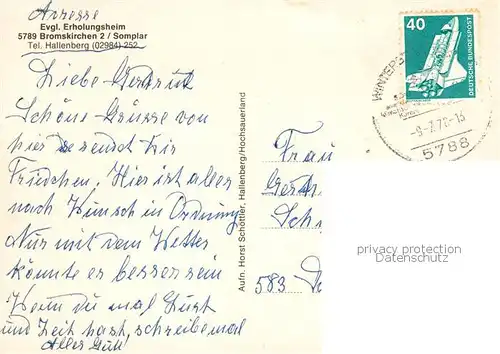 Adresse
Evgl. Erholungsheim
5789 Bromskirchen 2 / Somplar
Tel. Hallenberg (02984) 252
Liebe Gertrud
Schöne Grüsse von
hier sendet Dir
Friedchen. Hier ist alles
nach Wunsch in Ordnung
Nur mit dem Wetter
könnte er besser sein
Wenn du mal Lust
und Zeit hast, schreibe mal
Alles Gute!
Aufn. Horst Schöttler, Hallenberg/Hochsauerland
40
DEUTSCHE BUNDESPOST
WINTERB
-9-7.78-15
5788
Frau
Gertr
Sch
583
privacy protection
DELCAMPE.NET